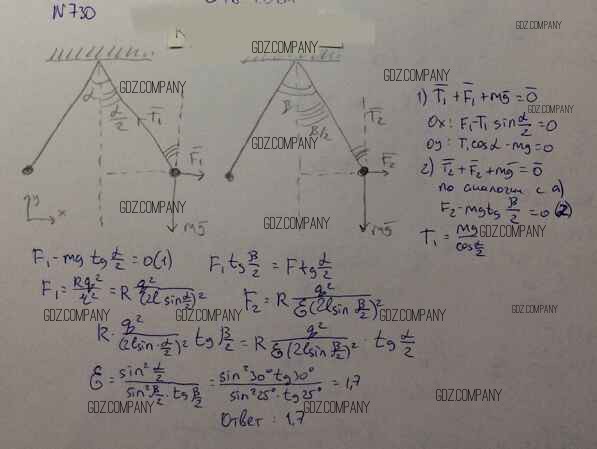 N730
GDZ.COMPANY
GDZ.COMPANY
GDZ.COMPANY
GDZ.COMPANY
GDZ.COMPANY
α
α/2
T̅₁
F̅₁
mg̅
y
x
β
β/2
T̅₂
F̅₂
mg̅
GDZ.COMPANY
GDZ.COMPANY
GDZ.COMPANY
GDZ.COMPANY
1) T̅₁ + F̅₁ + mg̅ = 0̅
Ox: F₁ - T₁ sin α/2 = 0
Oy: T₁ cos α - mg = 0
2) T̅₂ + F̅₂ + mg̅ = 0̅
по аналогии с а)
F₂ - mg tg β/2 = 0 (2)
T₁ = mg / cos α/2
GDZ.COMPANY
F₁ - mg tg α/2 = 0 (1) F₁ tg β/2 = F tg α/2
F₁ = Rq²/r² = R q²/(2l sin α/2)² F₂ = R q²/ε(2l sin β/2)²
GDZ.COMPANY GDZ.COMPANY GDZ.COMPANY
R · q²/(2l sin · α/2)² tg β/2 = R q²/ε(2l sin β/2)² · tg α/2
ε = sin² α/2 / sin² β/2 · tg β/2 = sin² 30° tg 30° / sin² 25° · tg 25° = 1,7
GDZ.COMPANY GDZ.COMPANY GDZ.COMPANY
Ответ: 1,7